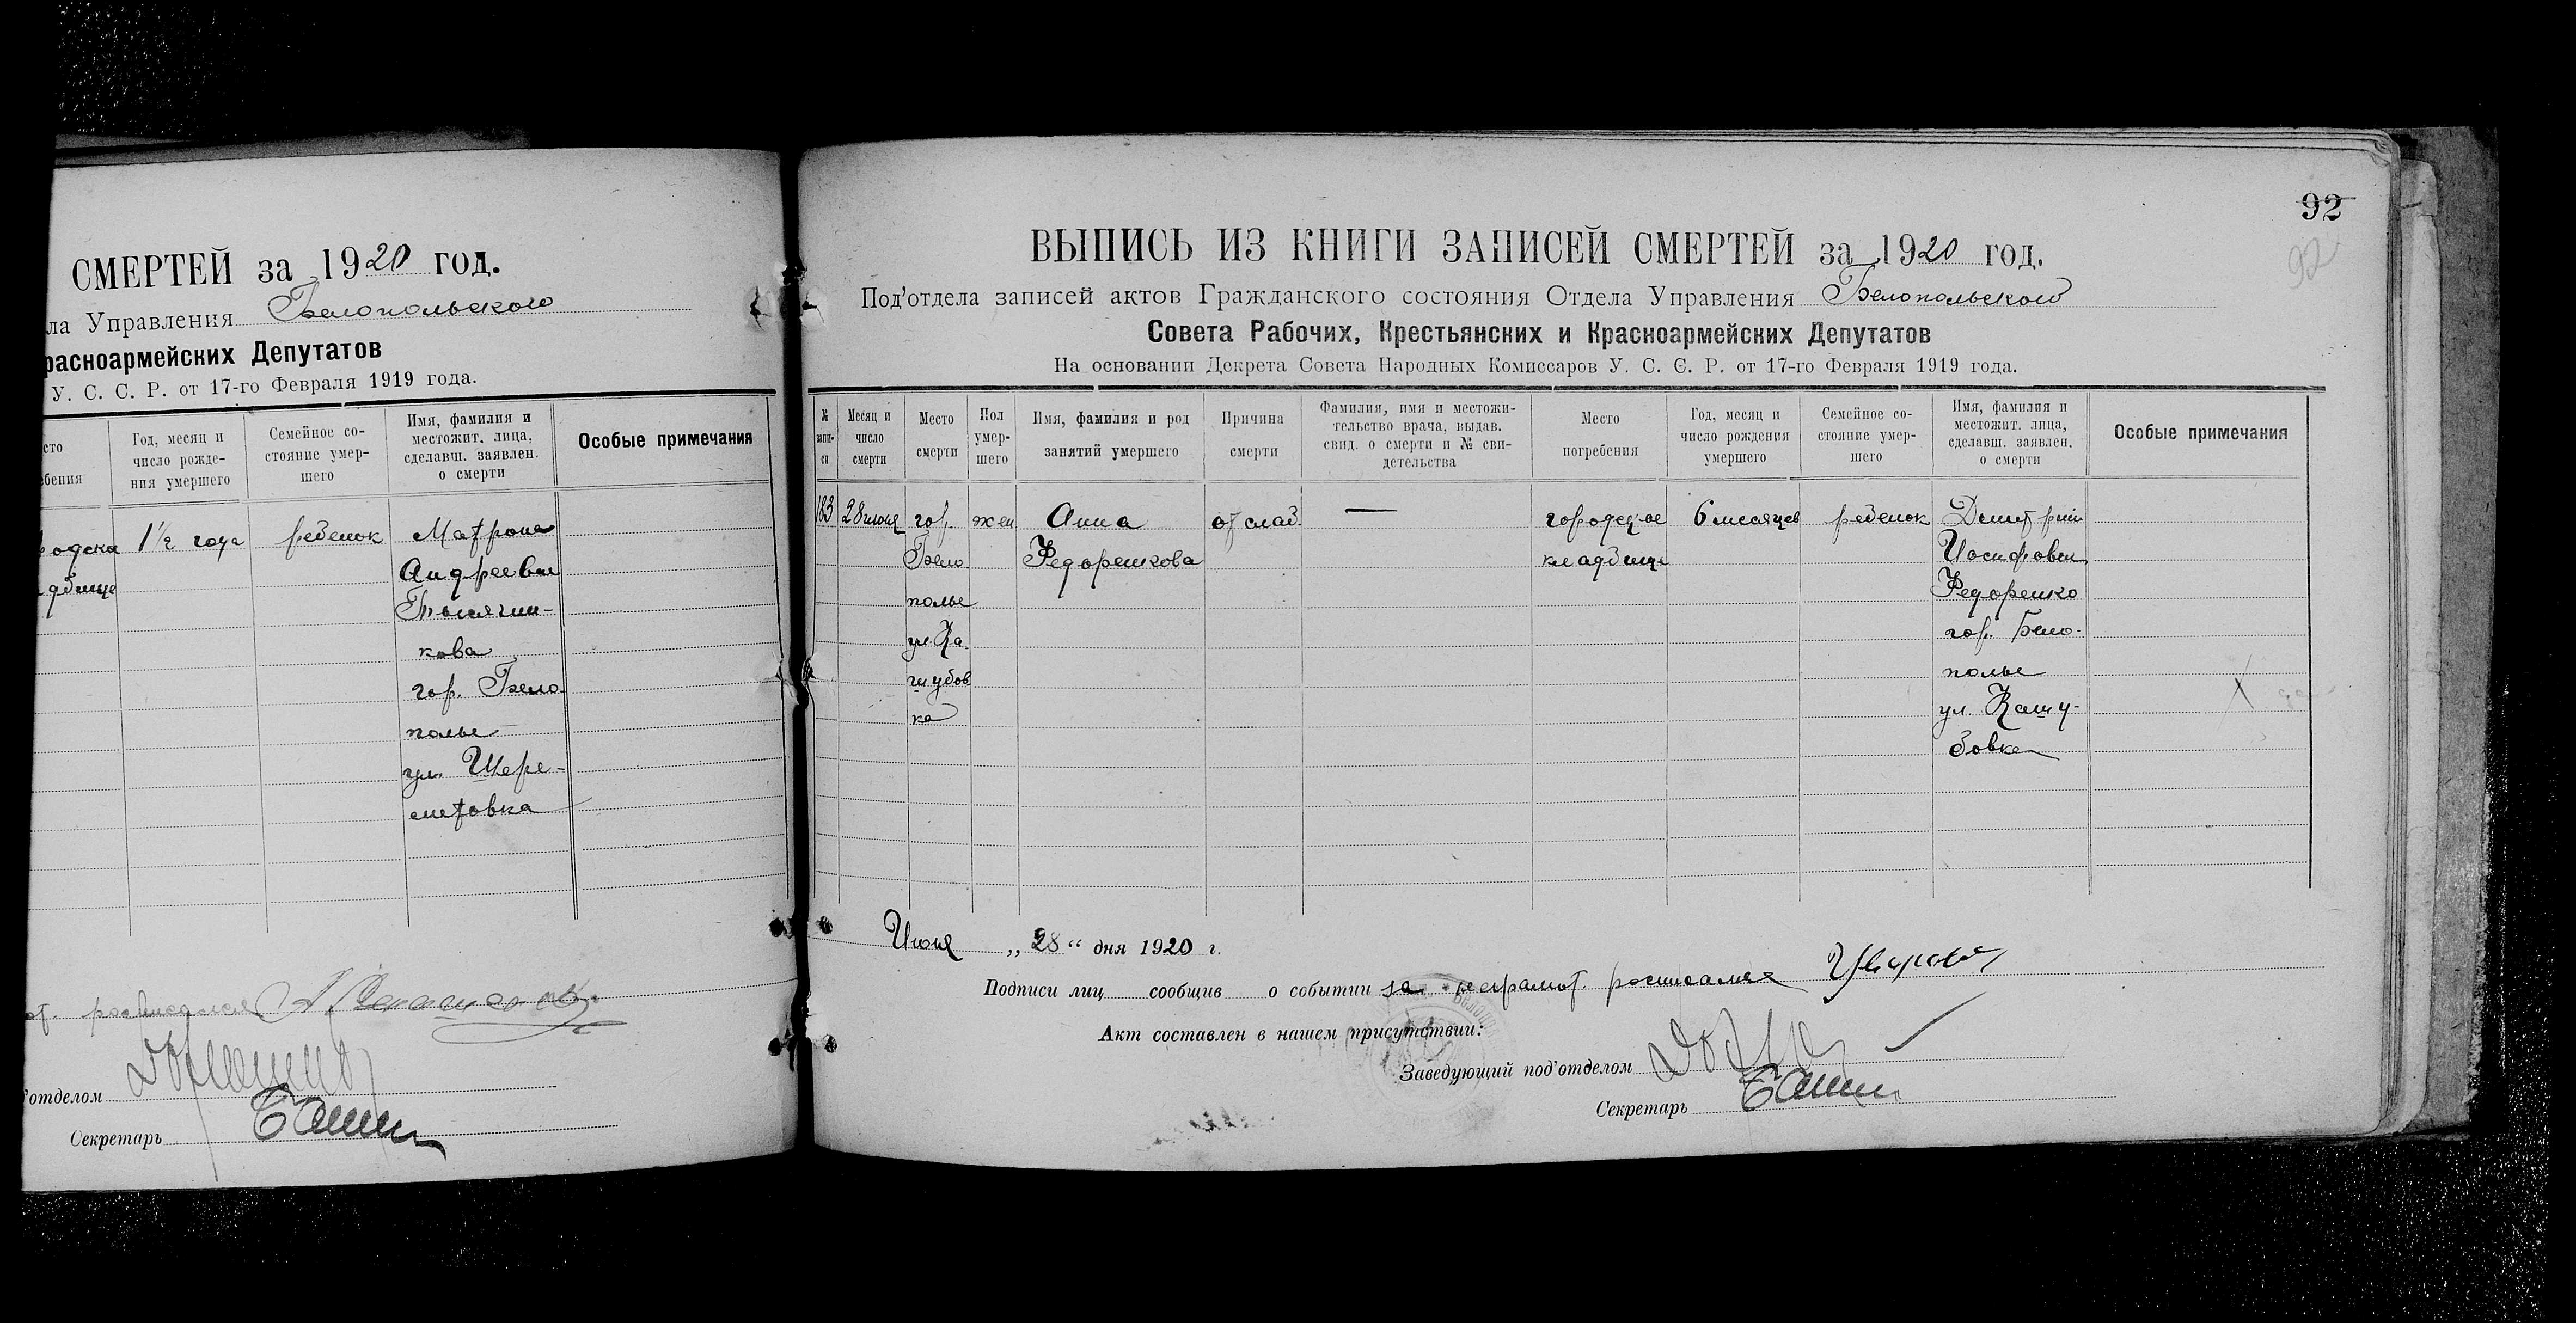 СМЕРТЕЙ за 1920 год.
ла Управления Белопольского
расноармейских Депутатов
У. С. С. Р. от 17-го Февраля 1919 года.
сто
ебения
Год, месяц и
число рожде-
ния умершего
Семейное со-
стояние умер-
шего
Имя, фамилия и
местожит. лица,
сделавш. заявлен.
о смерти
Особые примечания
1½ года
ребенок
Матрона
Андреевна
кова
гор. Бело-
полье
ул. Шере-
метовка
росписался
'отделом
Секретарь
92
92
ВЫПИСЬ ИЗ КНИГИ ЗАПИСЕЙ СМЕРТЕЙ за 1920 год.
Под'отдела записей актов Гражданского состояния Отдела Управления Белопольского
Совета Рабочих, Крестьянских и Красноармейских Депутатов
На основании Декрета Совета Народных Комиссаров У. С. С. Р. от 17-го Февраля 1919 года.
№
запи-
си
Месяц и
число
смерти
Место
смерти
Пол
умер-
шего
Имя, фамилия и род
занятий умершего
Причина
смерти
Фамилия, имя и местожи-
тельство врача, выдав.
свид. о смерти и № сви-
детельства
Место
погребения
Год, месяц и
число рождения
умершего
Семейное со-
стояние умер-
шего
Имя, фамилия и
местожит. лица,
сделавш. заявлен.
о смерти
Особые примечания
183
28 июня
гор.
Бело
полье
ул. Ка
шубов
ка
жен
Анна
Федоренкова
от слаб.
—
городское
кладбище
6 месяцев
ребенок
Дмитрий
Иосифович
Федоренко
гор. Бело-
полье
ул. Кашу-
бовка
Июня „28“ дня 1920 г.
Подписи лиц сообщив о событии за неграмот. росписался
Акт составлен в нашем присутствии:
Заведующий под'отделом
Секретарь